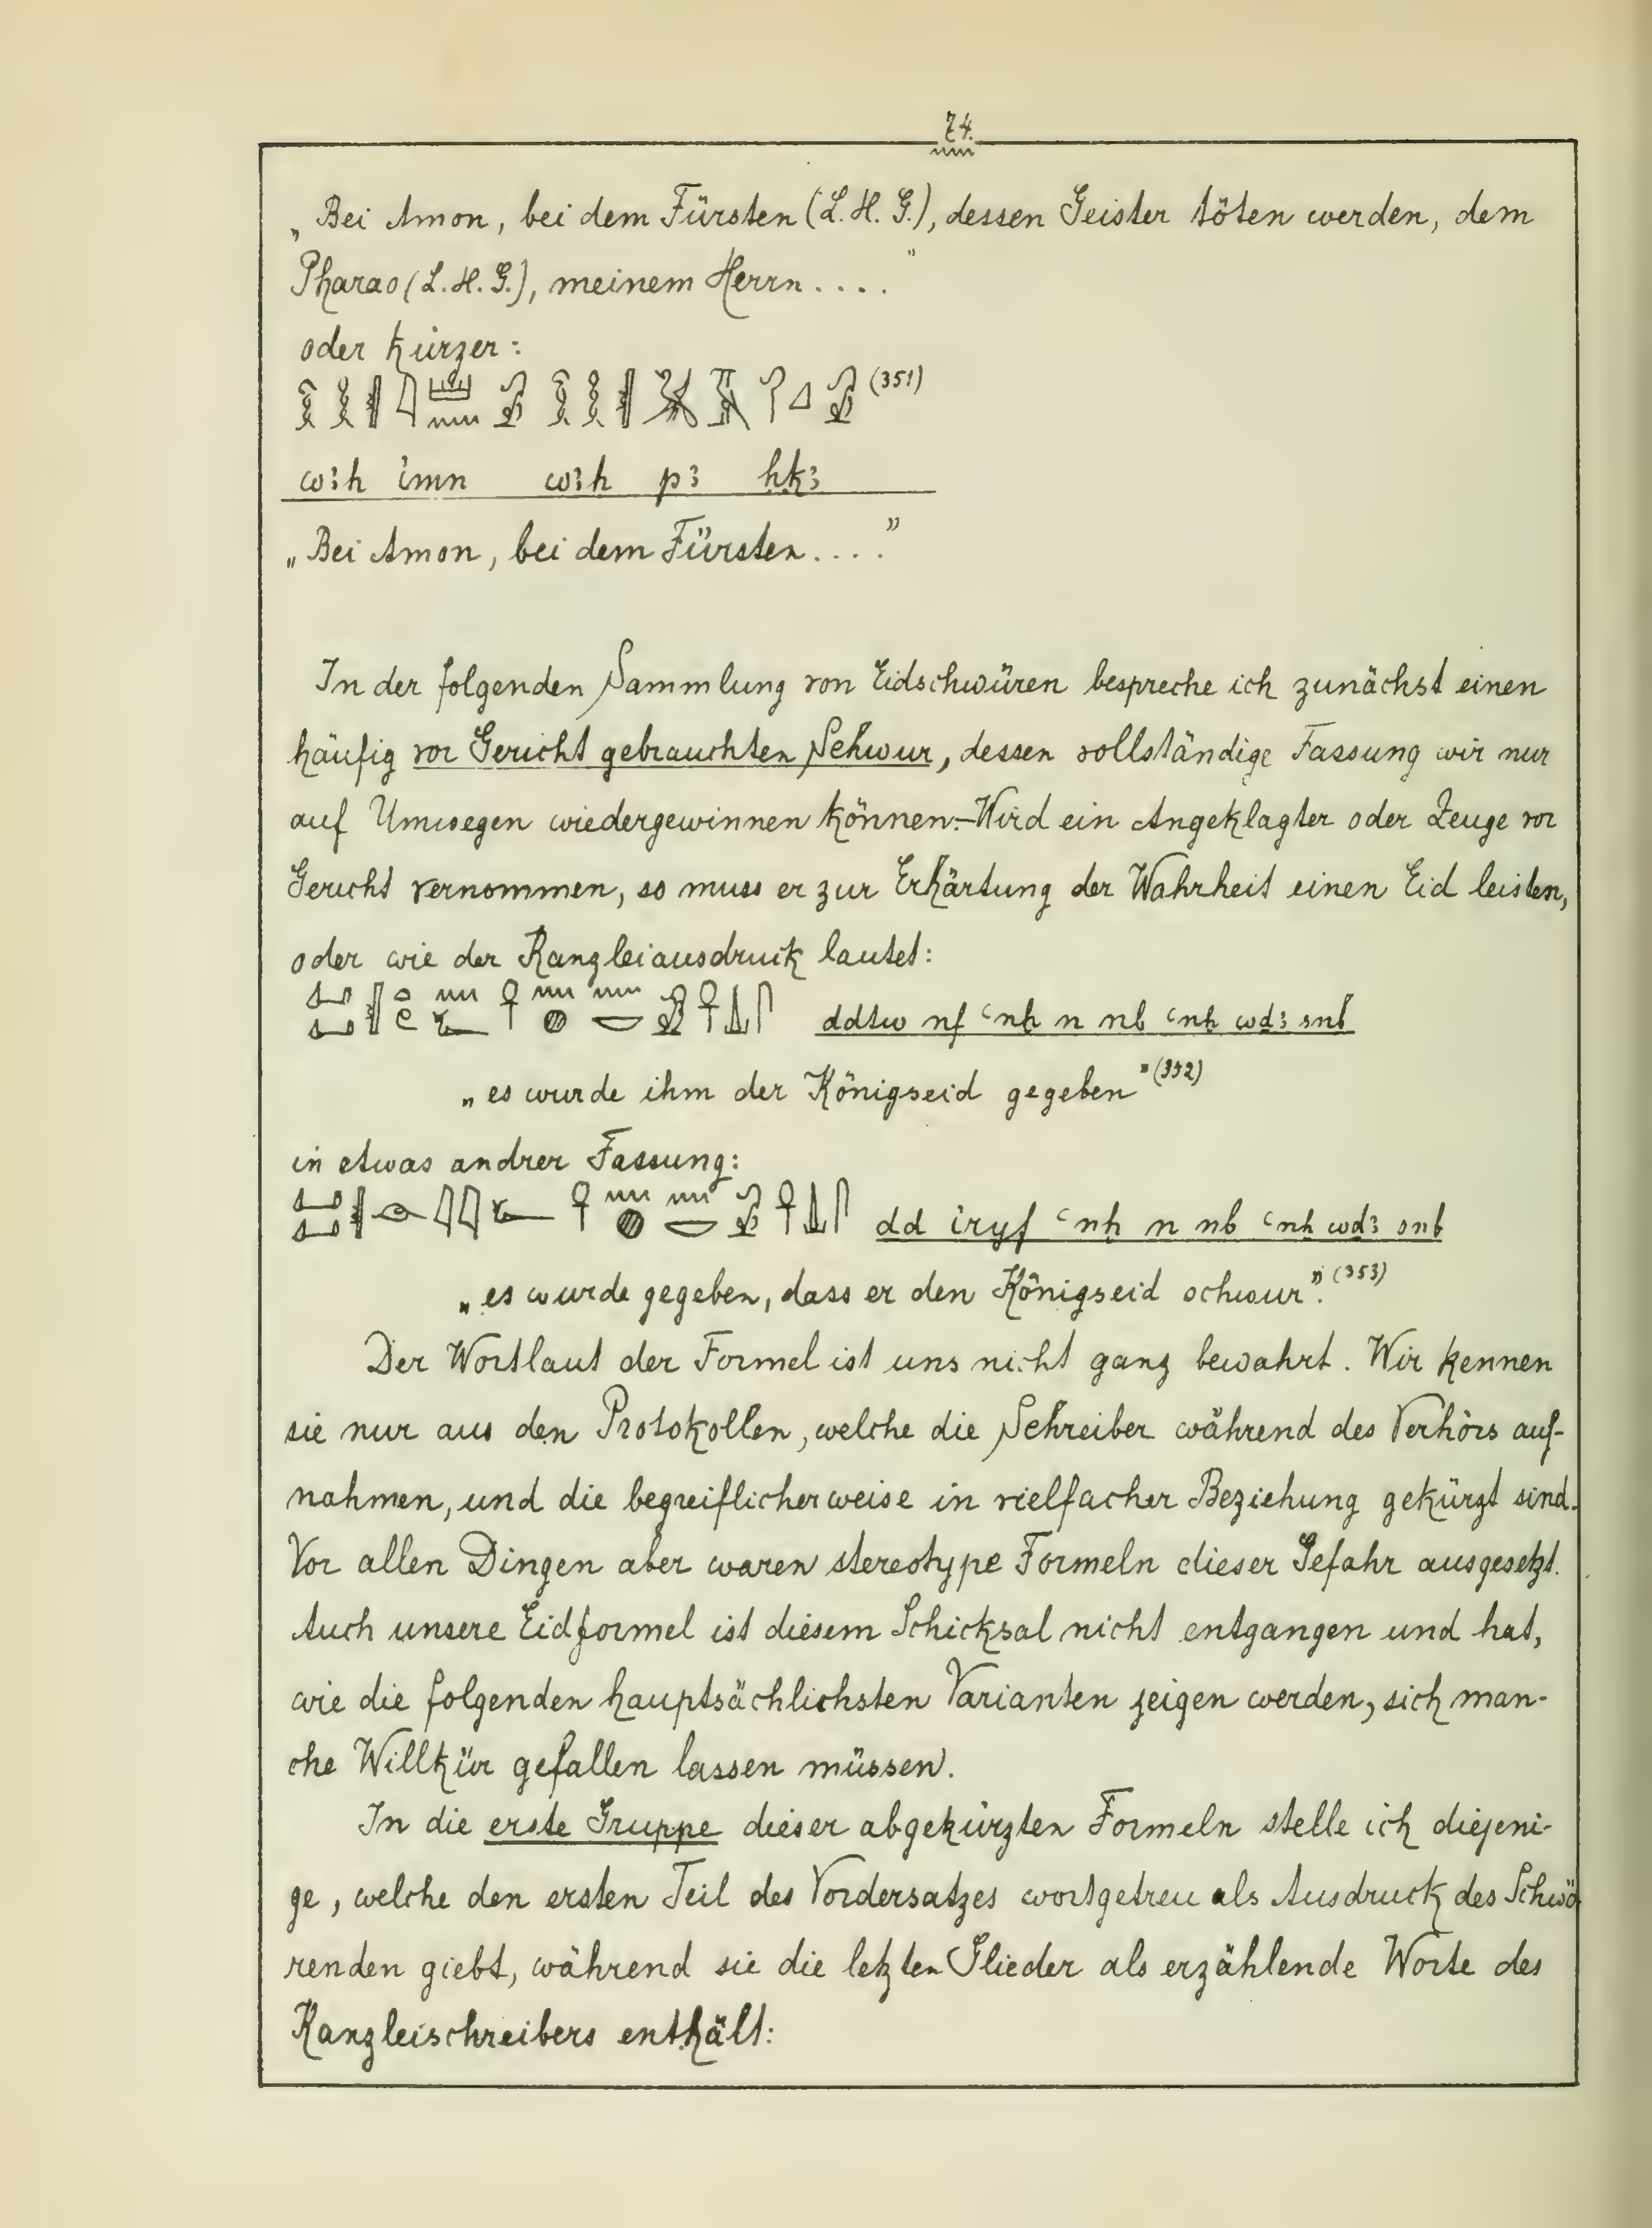 74.
„Bei Amon, bei dem Fürsten (L. H. G.), dessen Geister töten werden, dem
Pharao (L. H. G.), meinem Herrn . . . .”
oder kürzer:
(351)
wꜣḥ ỉmn wꜣḥ pꜣ ḥḳꜣ
„Bei Amon, bei dem Fürsten . . . .”
In der folgenden Sammlung von Eidschwüren bespreche ich zunächst einen
häufig vor Gericht gebrauchten Schwur, dessen vollständige Fassung wir nur
auf Umwegen wiedergewinnen können. – Wird ein Angeklagter oder Zeuge vor
Gericht vernommen, so muss er zur Erhärtung der Wahrheit einen Eid leisten,
oder wie der Kanzleiausdruck lautet:
ddtw nf ꜥnḫ n nb ꜥnḫ wḏꜣ snb
„es wurde ihm der Königseid gegeben” (352)
in etwas andrer Fassung:
dd iryf ꜥnḫ n nb ꜥnḫ wḏꜣ snb
„es wurde gegeben, dass er den Königseid schwur”. (353)
Der Wortlaut der Formel ist uns nicht ganz bewahrt. Wir kennen
sie nur aus den Protokollen, welche die Schreiber während des Verhörs auf-
nahmen, und die begreiflicherweise in vielfacher Beziehung gekürzt sind.
Vor allen Dingen aber waren stereotype Formeln dieser Gefahr ausgesetzt.
Auch unsere Eidformel ist diesem Schicksal nicht entgangen und hat,
wie die folgenden hauptsächlichsten Varianten zeigen werden, sich man-
che Willkür gefallen lassen müssen.
In die erste Gruppe dieser abgekürzten Formeln stelle ich diejeni-
ge, welche den ersten Teil des Vordersatzes wortgetreu als Ausdruck des Schwö
renden giebt, während sie die letzten Glieder als erzählende Worte des
Kanzleischreibers enthält: